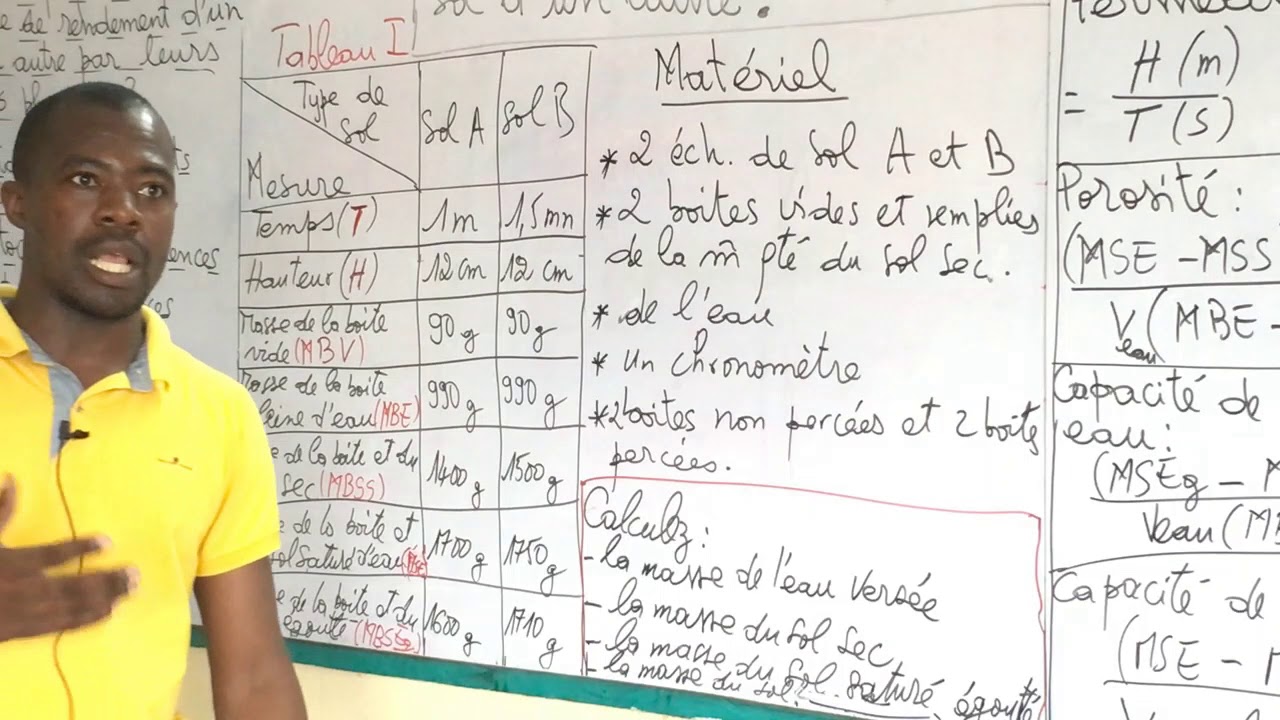 rendement d'un
autre par leurs
ences
Tableau I
Type de
sol
Mesure
Sol A
Sol B
Temps (T) 1m 1,5mn
Hauteur (H) 12 cm 12 cm
Masse de la boite
vide (MBV) 90 g 90 g
Masse de la boite
leine d'eau (MBE) 990 g 990 g
e de la boite et du
sec (MBSS) 1400 g 1500 g
e de la boite et
sol saturé d'eau 1700 g 1750 g
e de la boite et du
égoutté 1600 g 1710 g
Matériel
* 2 éch. de Sol A et B
* 2 boites vides et remplies
de la m̄ pté du sol sec.
* de l'eau
* un chronomètre
* 2 boites non percées et 2 boites
percées.
Calculez :
- la masse de l'eau versée
- la masse du sol sec
- la masse du sol saturé
- la masse du sol égoutté
= H (m)
T (s)
Porosité :
(MSE - MSS
Veau (MBE -
Capacité de
eau :
(MSEg - M
Veau (MB
Capacité de
(MSE - M